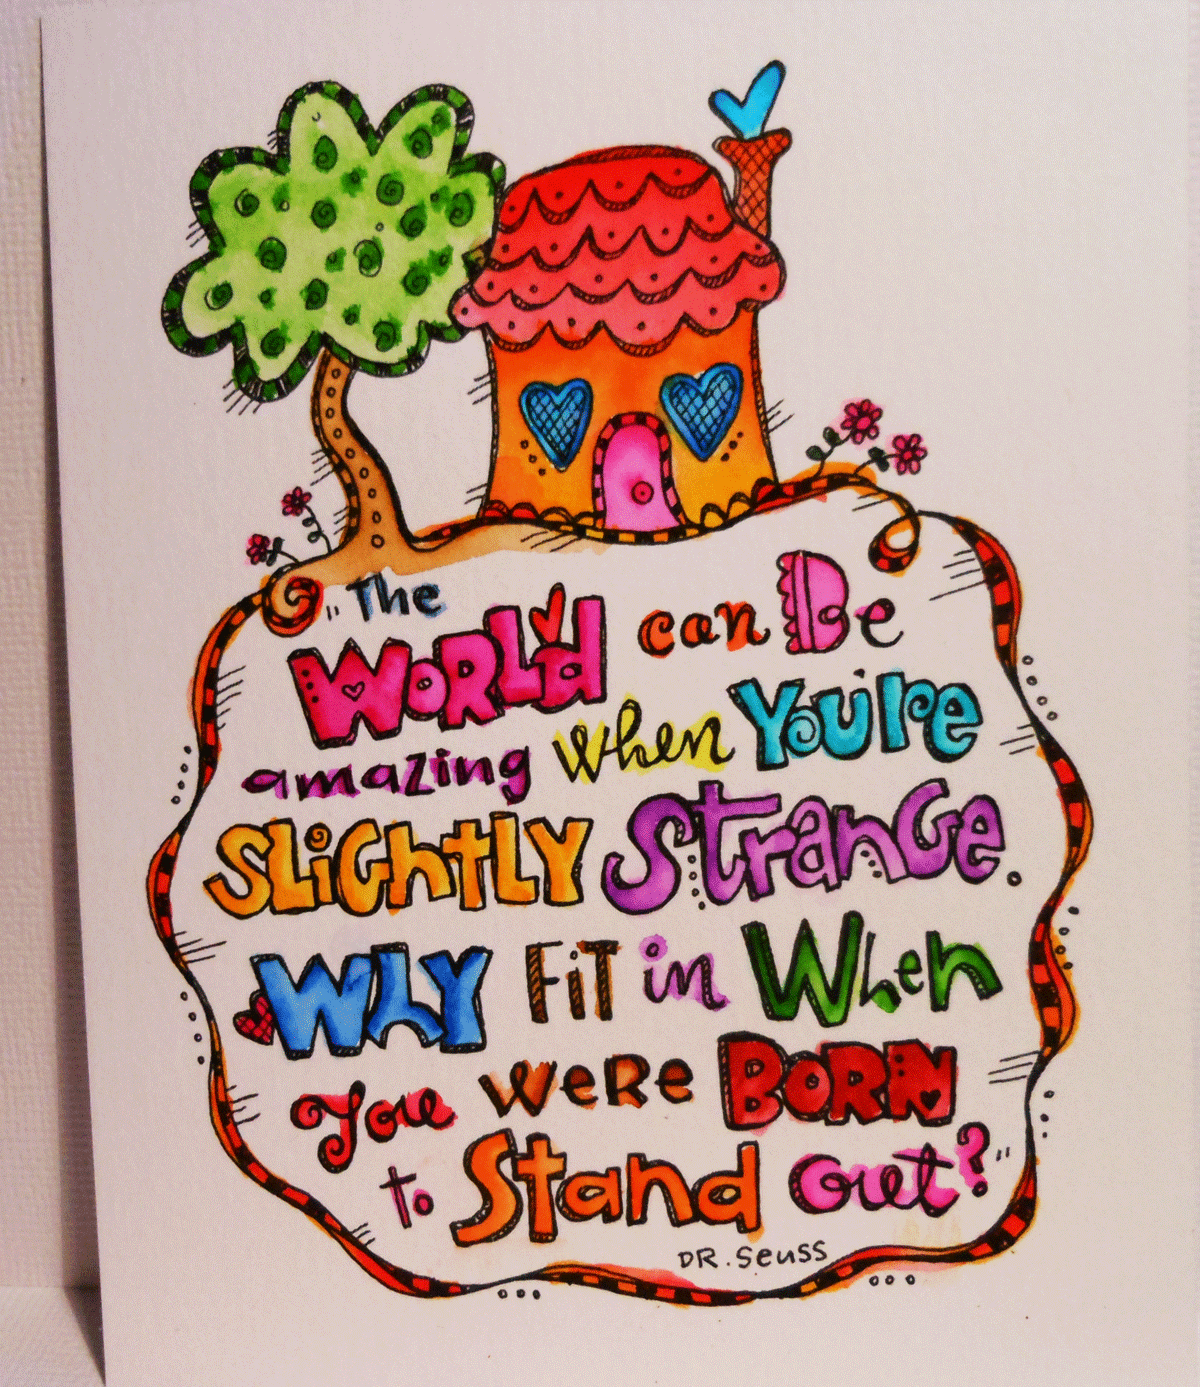 "The
WORLd can Be
amazing when You're
SLiGhtLY StranGe.
WhY FiT in When
You weRe BORN
to Stand out?"
DR. Seuss